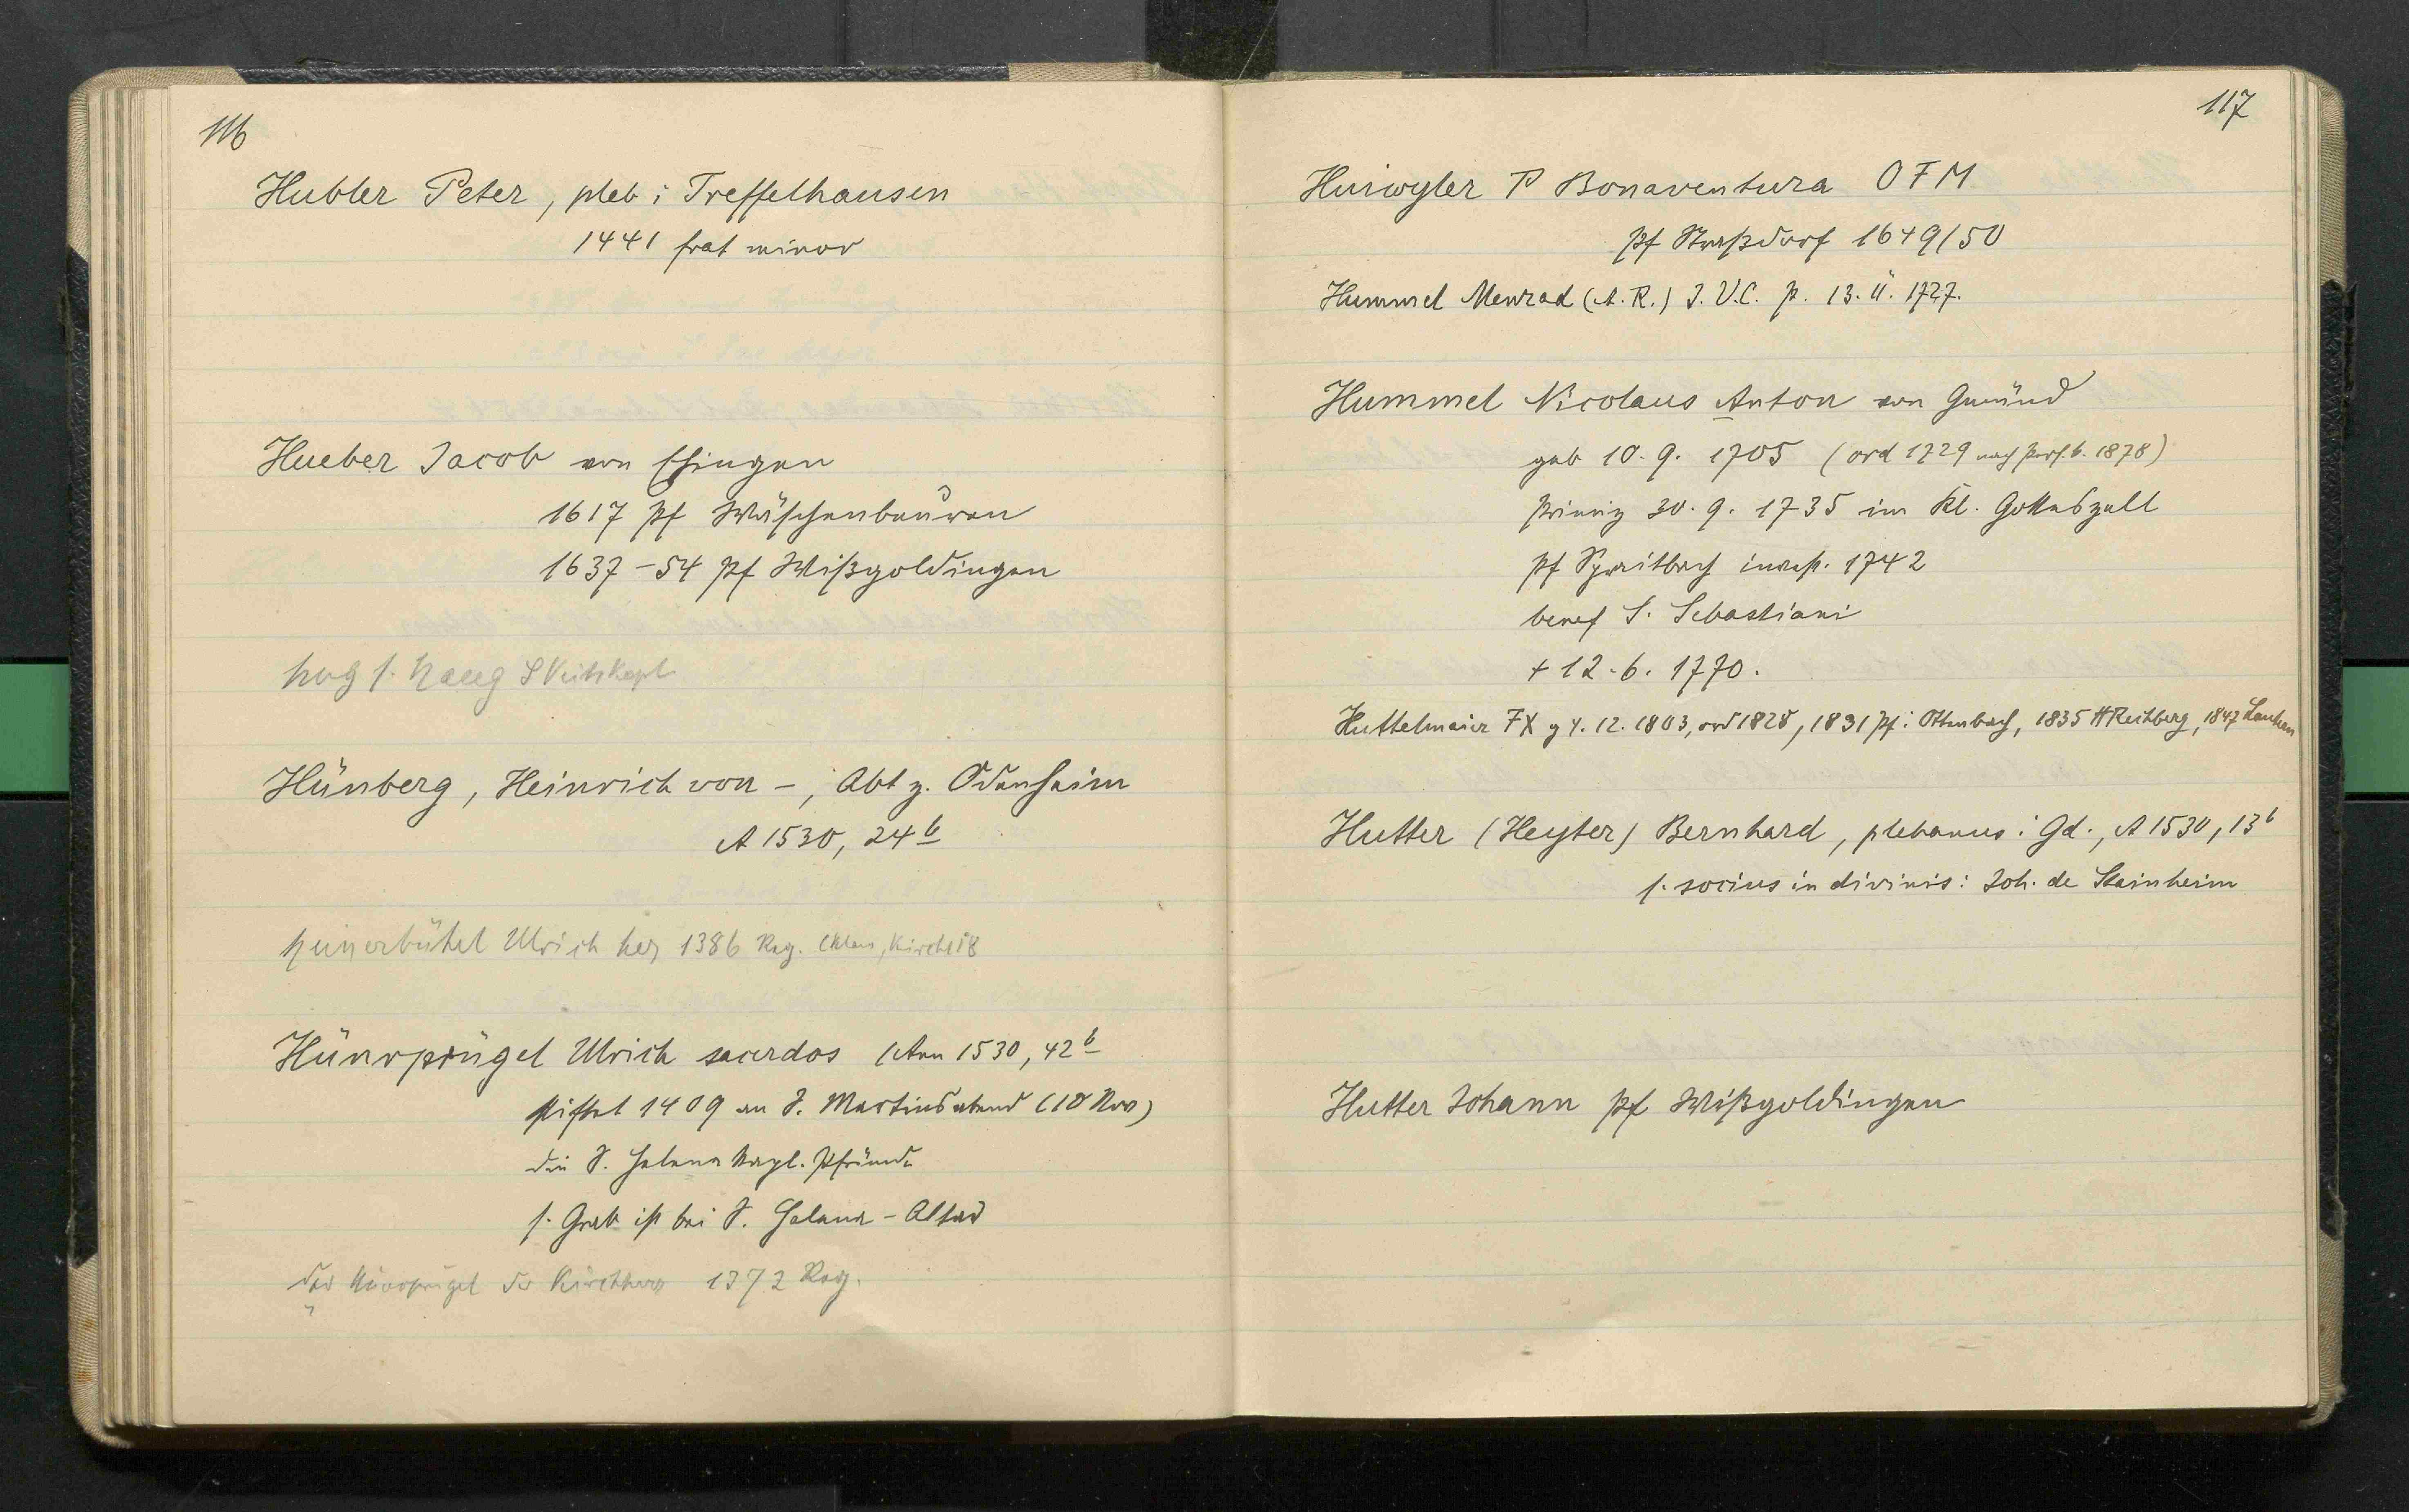 116
Hubler Peter, pleb i Treffelhausen
1441 frat minor
Hueber Jacob von Ehingen
1617 Pf Wäschenbeuren
1637–54 Pf Wißgoldingen
hug s. Haug S Veitskapl
Hünberg, Heinrich von –, Abt z. Odenheim
A 1530, 24b
Ulrich her 1386 Reg.
Hünrprügel Ulrich sacerdos (Ann 1530, 42b
stiftet 1409 an S. Martinsabend (10 Nov)
die S. Helena Kapl. Pfründe
s. Grab ist bei S. Helena-Altar
der der Kirchherr 1372 Reg.
117
Huiwyler P Bonaventura OFM
Pf Straßdorf 1649/50
Hummel Menrad (A. R.) J. V. C. p. 13. II. 1727.
Hummel Nicolaus Anton von Gmünd
geb 10. 9. 1705 (ord 1729 nach 1878)
Primiz 30. 9. 1735 im Kl. Gotteszell
Pf Spraitbach invest. 1742
benef S. Sebastiani
+ 12. 6. 1770.
Huttelmaier FX g 4. 12. 1803, ord 1828, 1831 Pf i Ottenbach, 1835 H Rechberg, 1847
Hutter (Heyter) Bernhard, plebanus i Gd., A 1530, 13b
s. socius in divinis: Joh. de Stainheim
Hutter Johann Pf Wißgoldingen